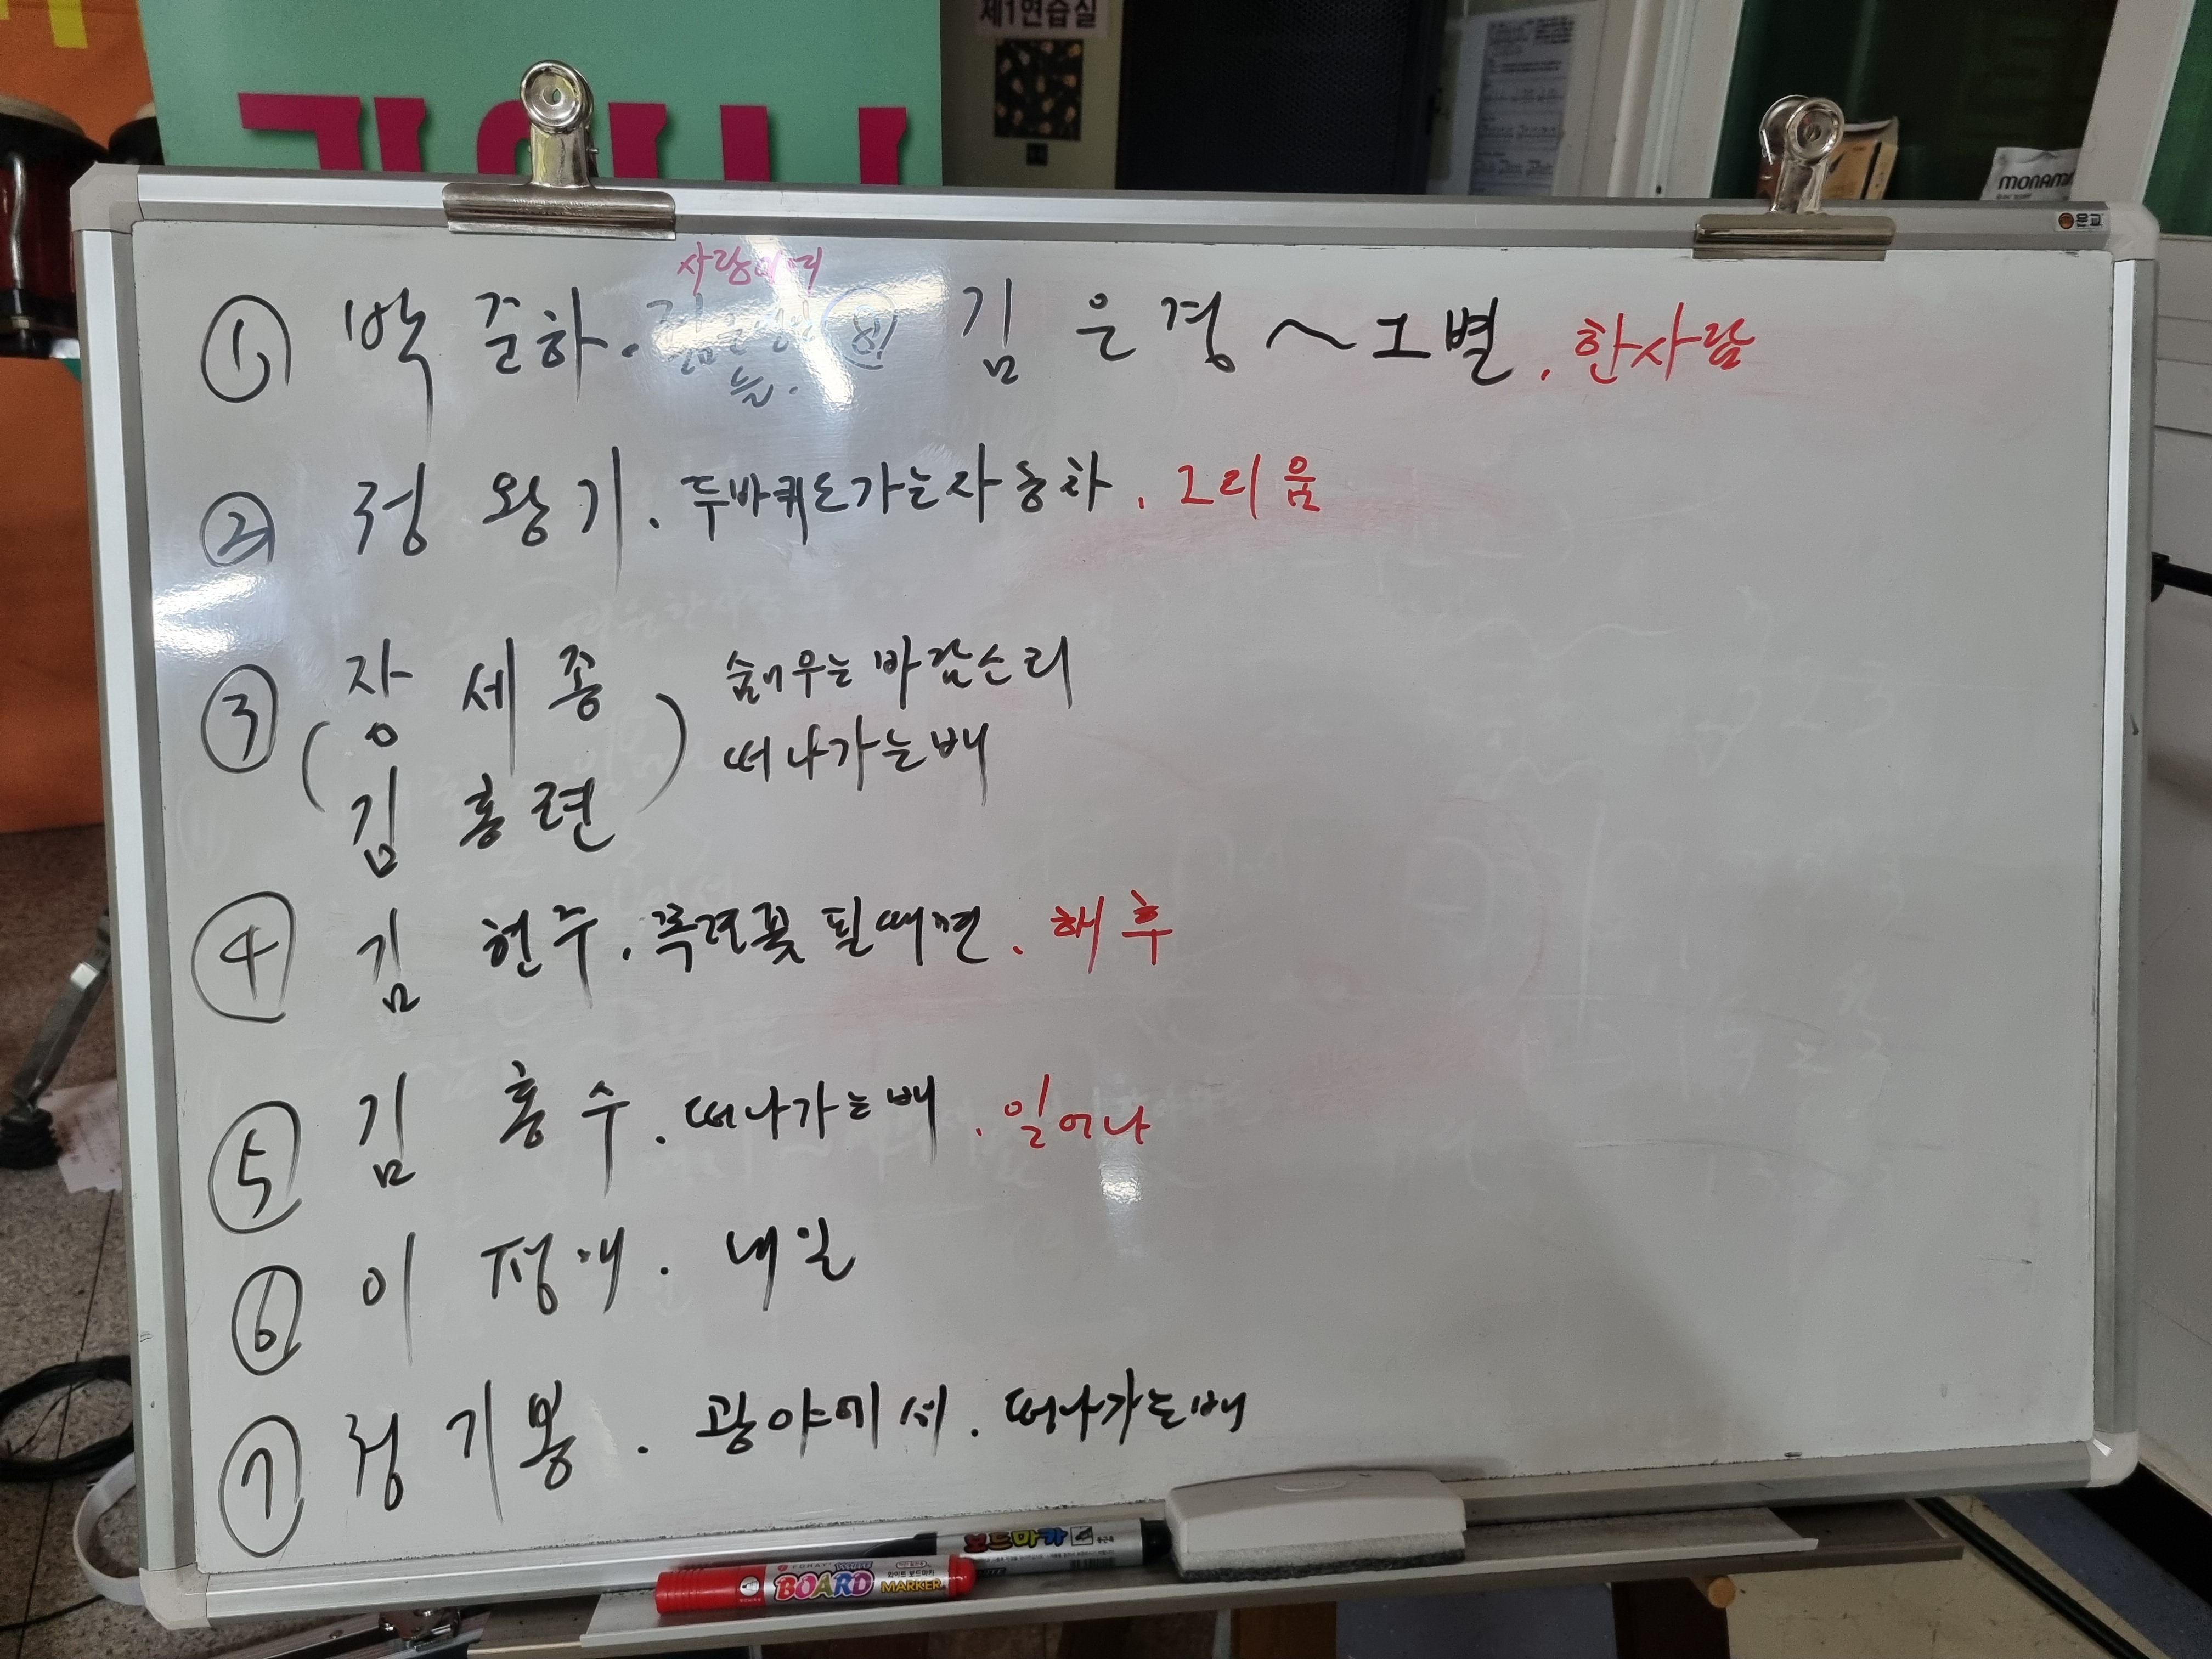 제1현습실
MONAMI
문교
사랑이여
① 박준하. ⑧ 김은경 ~ 그별. 한사람
늘.
② 정왕기. 두바퀴로가는자동차. 그리움
③ (장세종 숨어우는바람소리
김홍련) 떠나가는배
④ 김현주. 목련꽃필때면. 해후
⑤ 김홍수. 떠나가는배. 일어나
⑥ 이정애. 내일
⑦ 정기봉. 광야에서. 떠나가는배
보드마카
BOARD
화이트 보드마카
MARKER